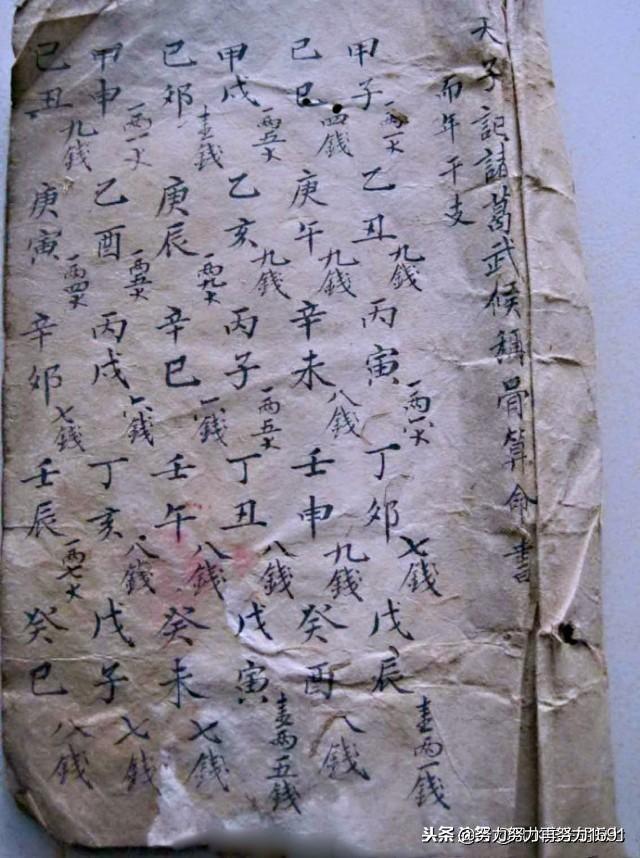 天子記諸葛武候稱骨算命書
而年干支
甲子 一兩一大 乙丑 九錢 丙寅 一兩一大 丁卯 七錢 戊辰 壹兩一錢
己巳 四錢 庚午 九錢 辛未 八錢 壬申 九錢 癸酉 八錢
甲戌 一兩五大 乙亥 九錢 丙子 一兩五大 丁丑 八錢 戊寅 壹兩五錢
己卯 壹錢 庚辰 一兩九大 辛巳 錢 壬午 八錢 癸未 七錢
甲申 一兩一大 乙酉 一兩五大 丙戌 六錢 丁亥 八錢 戊子 七錢
己丑 九錢 庚寅 一兩四大 辛卯 七錢 壬辰 一兩七大 癸巳 八錢
头条 @努力努力再努力